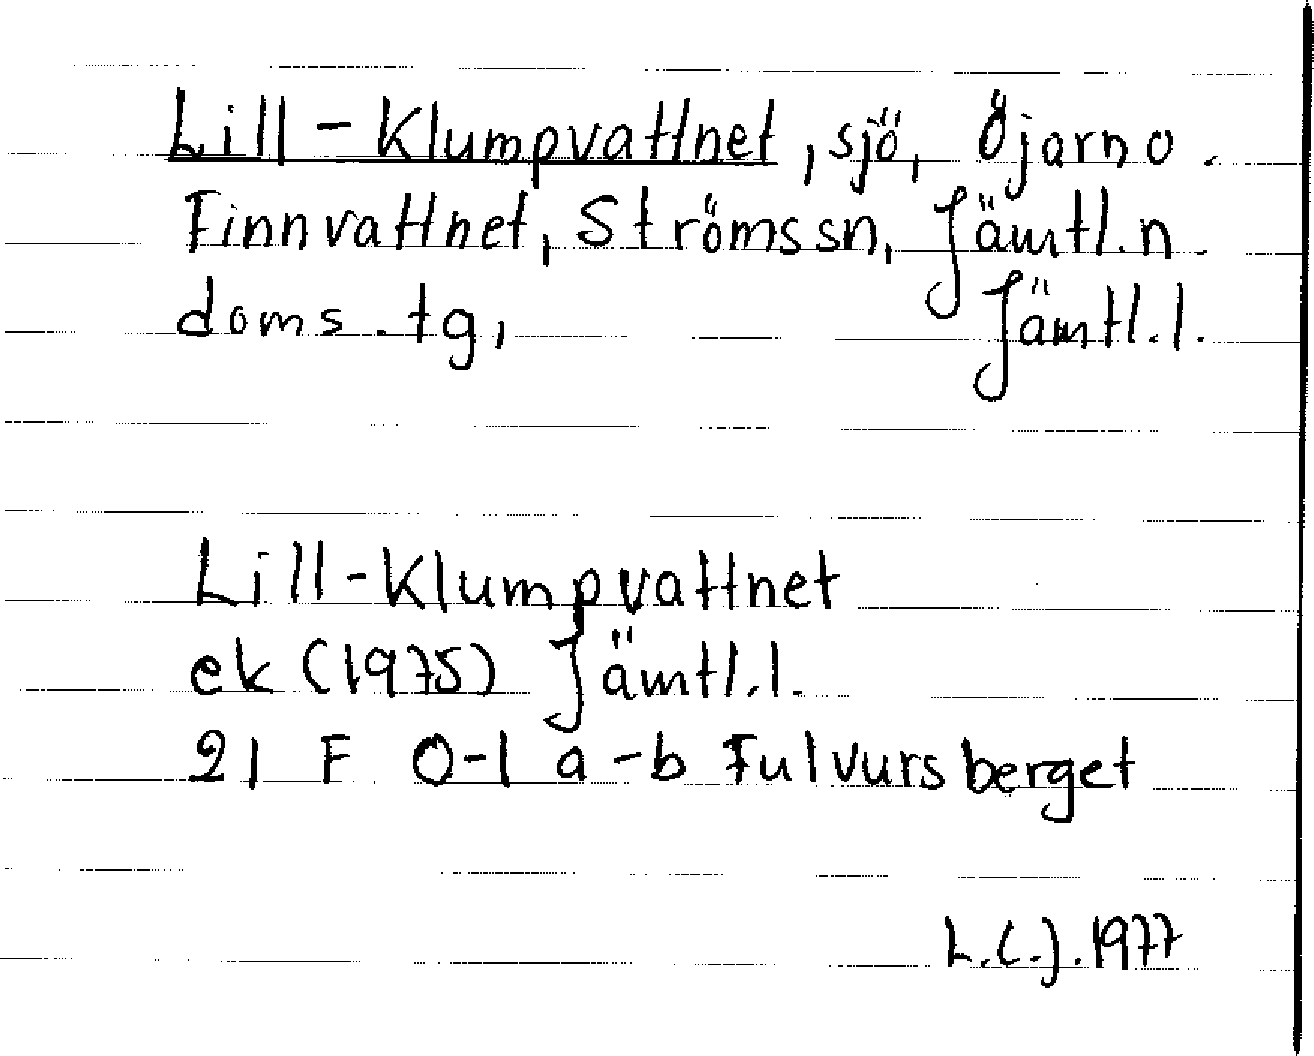 Lill-Klumpvattnet, sjö, Öjarn o.
Finnvattnet, Ströms sn, Jämtl. n.
doms. tg, Jämtl. l.
Lill-Klumpvattnet
ek (1975) Jämtl. l.
21 F 0-1 a-b Fulvursberget
L.C.J. 1977